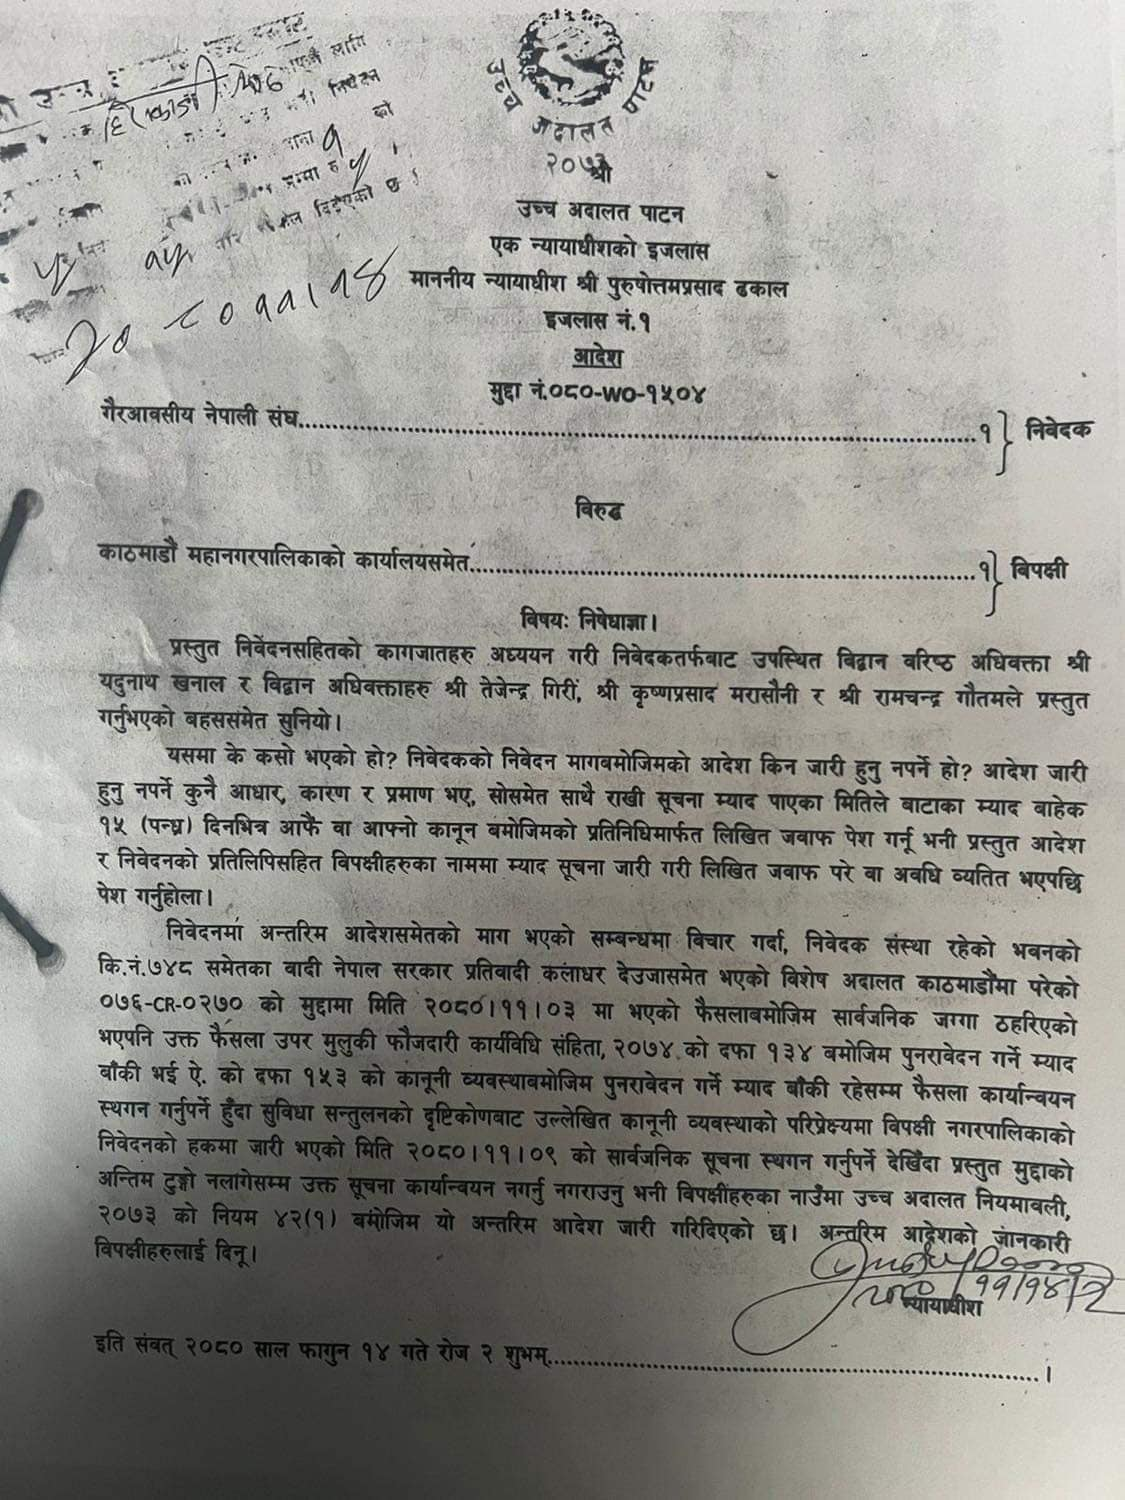 उच्च अदालत पाटन
२०७३
श्री
उच्च अदालत पाटन
एक न्यायाधीशको इजलास
माननीय न्यायाधीश श्री पुरुषोत्तमप्रसाद ढकाल
इजलास नं.१
आदेश
मुद्दा नं.०८०-WO-१५०४
गैरआवसीय नेपाली संघ...१ निवेदक
विरुद्ध
काठमाडौं महानगरपालिकाको कार्यालयसमेत...१ विपक्षी
विषयः निषेधाज्ञा।
प्रस्तुत निवेदनसहितको कागजातहरु अध्ययन गरी निवेदकतर्फबाट उपस्थित विद्वान वरिष्ठ अधिवक्ता श्री
यदुनाथ खनाल र विद्वान अधिवक्ताहरु श्री तेजेन्द्र गिरीं, श्री कृष्णप्रसाद मरासौनी र श्री रामचन्द्र गौतमले प्रस्तुत
गर्नुभएको बहससमेत सुनियो।
यसमा के कसो भएको हो? निवेदकको निवेदन मागबमोजिमको आदेश किन जारी हुनु नपर्ने हो? आदेश जारी
हुनु नपर्ने कुनै आधार, कारण र प्रमाण भए, सोसमेत साथै राखी सूचना म्याद पाएका मितिले बाटाका म्याद बाहेक
१५ (पन्ध्र) दिनभित्र आफैं वा आफ्नो कानून बमोजिमको प्रतिनिधिमार्फत लिखित जवाफ पेश गर्नू भनी प्रस्तुत आदेश
र निवेदनको प्रतिलिपिसहित विपक्षीहरुका नाममा म्याद सूचना जारी गरी लिखित जवाफ परे वा अवधि व्यतित भएपछि
पेश गर्नुहोला।
निवेदनमा अन्तरिम आदेशसमेतको माग भएको सम्बन्धमा विचार गर्दा, निवेदक संस्था रहेको भवनको
कि.नं.७४८ समेतका वादी नेपाल सरकार प्रतिवादी कलाधर देउजासमेत भएको विशेष अदालत काठमाडौंमा परेको
०७६-CR-०२७० को मुद्दामा मिति २०८०।११।०३ मा भएको फैसलाबमोजिम सार्वजनिक जग्गा ठहरिएको
भएपनि उक्त फैसला उपर मुलुकी फौजदारी कार्यविधि संहिता, २०७४ को दफा १३४ बमोजिम पुनरावेदन गर्ने म्याद
बाँकी भई ऐ. को दफा १५३ को कानूनी व्यवस्थाबमोजिम पुनरावेदन गर्ने म्याद बाँकी रहेसम्म फैसला कार्यान्वयन
स्थगन गर्नुपर्ने हुँदा सुविधा सन्तुलनको दृष्टिकोणबाट उल्लेखित कानूनी व्यवस्थाको परिप्रेक्ष्यमा विपक्षी नगरपालिकाको
निवेदनको हकमा जारी भएको मिति २०८०।११।०९ को सार्वजनिक सूचना स्थगन गर्नुपर्ने देखिँदा प्रस्तुत मुद्दाको
अन्तिम टुङ्गो नलागेसम्म उक्त सूचना कार्यान्वयन नगर्नु नगराउनु भनी विपक्षीहरुका नाउँमा उच्च अदालत नियमावली,
२०७३ को नियम ४२(१) बमोजिम यो अन्तरिम आदेश जारी गरिदिएको छ। अन्तरिम आदेशको जानकारी
विपक्षीहरुलाई दिनू।
न्यायाधीश
इति संवत् २०८० साल फागुन १४ गते रोज २ शुभम्...।